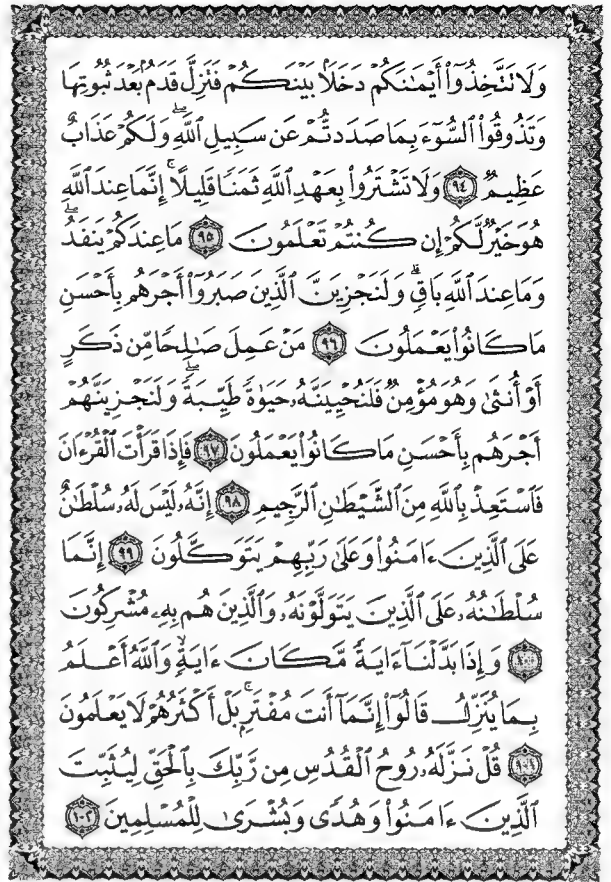 وَلَا تَتَّخِذُوٓا۟ أَيْمَٰنَكُمْ دَخَلًۢا بَيْنَكُمْ فَتَزِلَّ قَدَمٌۢ بَعْدَ ثُبُوتِهَا
وَتَذُوقُوا۟ ٱلسُّوٓءَ بِمَا صَدَدتُّمْ عَن سَبِيلِ ٱللَّهِ ۖ وَلَكُمْ عَذَابٌ
عَظِيمٌ ٩٤ وَلَا تَشْتَرُوا۟ بِعَهْدِ ٱللَّهِ ثَمَنًا قَلِيلًا ۚ إِنَّمَا عِندَ ٱللَّهِ
هُوَ خَيْرٌ لَّكُمْ إِن كُنتُمْ تَعْلَمُونَ ٩٥ مَا عِندَكُمْ يَنفَدُ ۖ
وَمَا عِندَ ٱللَّهِ بَاقٍ ۗ وَلَنَجْزِيَنَّ ٱلَّذِينَ صَبَرُوٓا۟ أَجْرَهُم بِأَحْسَنِ
مَا كَانُوا۟ يَعْمَلُونَ ٩٦ مَنْ عَمِلَ صَٰلِحًا مِّن ذَكَرٍ
أَوْ أُنثَىٰ وَهُوَ مُؤْمِنٌ فَلَنُحْيِيَنَّهُۥ حَيَوٰةً طَيِّبَةً ۖ وَلَنَجْزِيَنَّهُمْ
أَجْرَهُم بِأَحْسَنِ مَا كَانُوا۟ يَعْمَلُونَ ٩٧ فَإِذَا قَرَأْتَ ٱلْقُرْءَانَ
فَٱسْتَعِذْ بِٱللَّهِ مِنَ ٱلشَّيْطَٰنِ ٱلرَّجِيمِ ٩٨ إِنَّهُۥ لَيْسَ لَهُۥ سُلْطَٰنٌ
عَلَى ٱلَّذِينَ ءَامَنُوا۟ وَعَلَىٰ رَبِّهِمْ يَتَوَكَّلُونَ ٩٩ إِنَّمَا
سُلْطَٰنُهُۥ عَلَى ٱلَّذِينَ يَتَوَلَّوْنَهُۥ وَٱلَّذِينَ هُم بِهِۦ مُشْرِكُونَ
١٠٠ وَإِذَا بَدَّلْنَآ ءَايَةً مَّكَانَ ءَايَةٍ ۙ وَٱللَّهُ أَعْلَمُ
بِمَا يُنَزِّلُ قَالُوٓا۟ إِنَّمَآ أَنتَ مُفْتَرٍۭ ۚ بَلْ أَكْثَرُهُمْ لَا يَعْلَمُونَ
١٠١ قُلْ نَزَّلَهُۥ رُوحُ ٱلْقُدُسِ مِن رَّبِّكَ بِٱلْحَقِّ لِيُثَبِّتَ
ٱلَّذِينَ ءَامَنُوا۟ وَهُدًى وَبُشْرَىٰ لِلْمُسْلِمِينَ ١٠٢